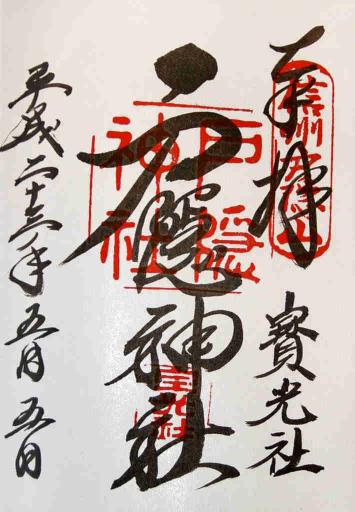 奉拝
寳光社
戸隠神社
平成二十三年五月五日
信州戸隠山
戸隠神社
宝光社